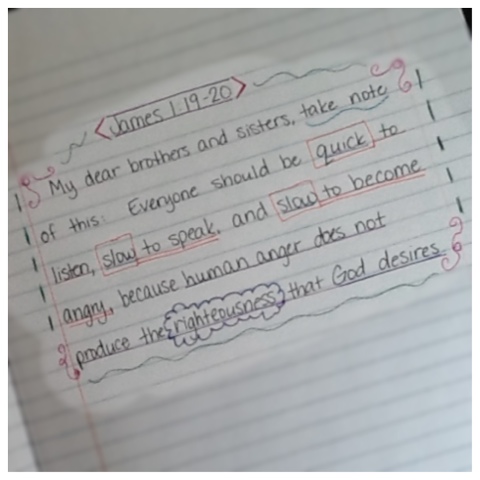 James 1:19-20
My dear brothers and sisters, take note
of this: Everyone should be quick to
listen, slow to speak, and slow to become
angry, because human anger does not
produce the righteousness that God desires.